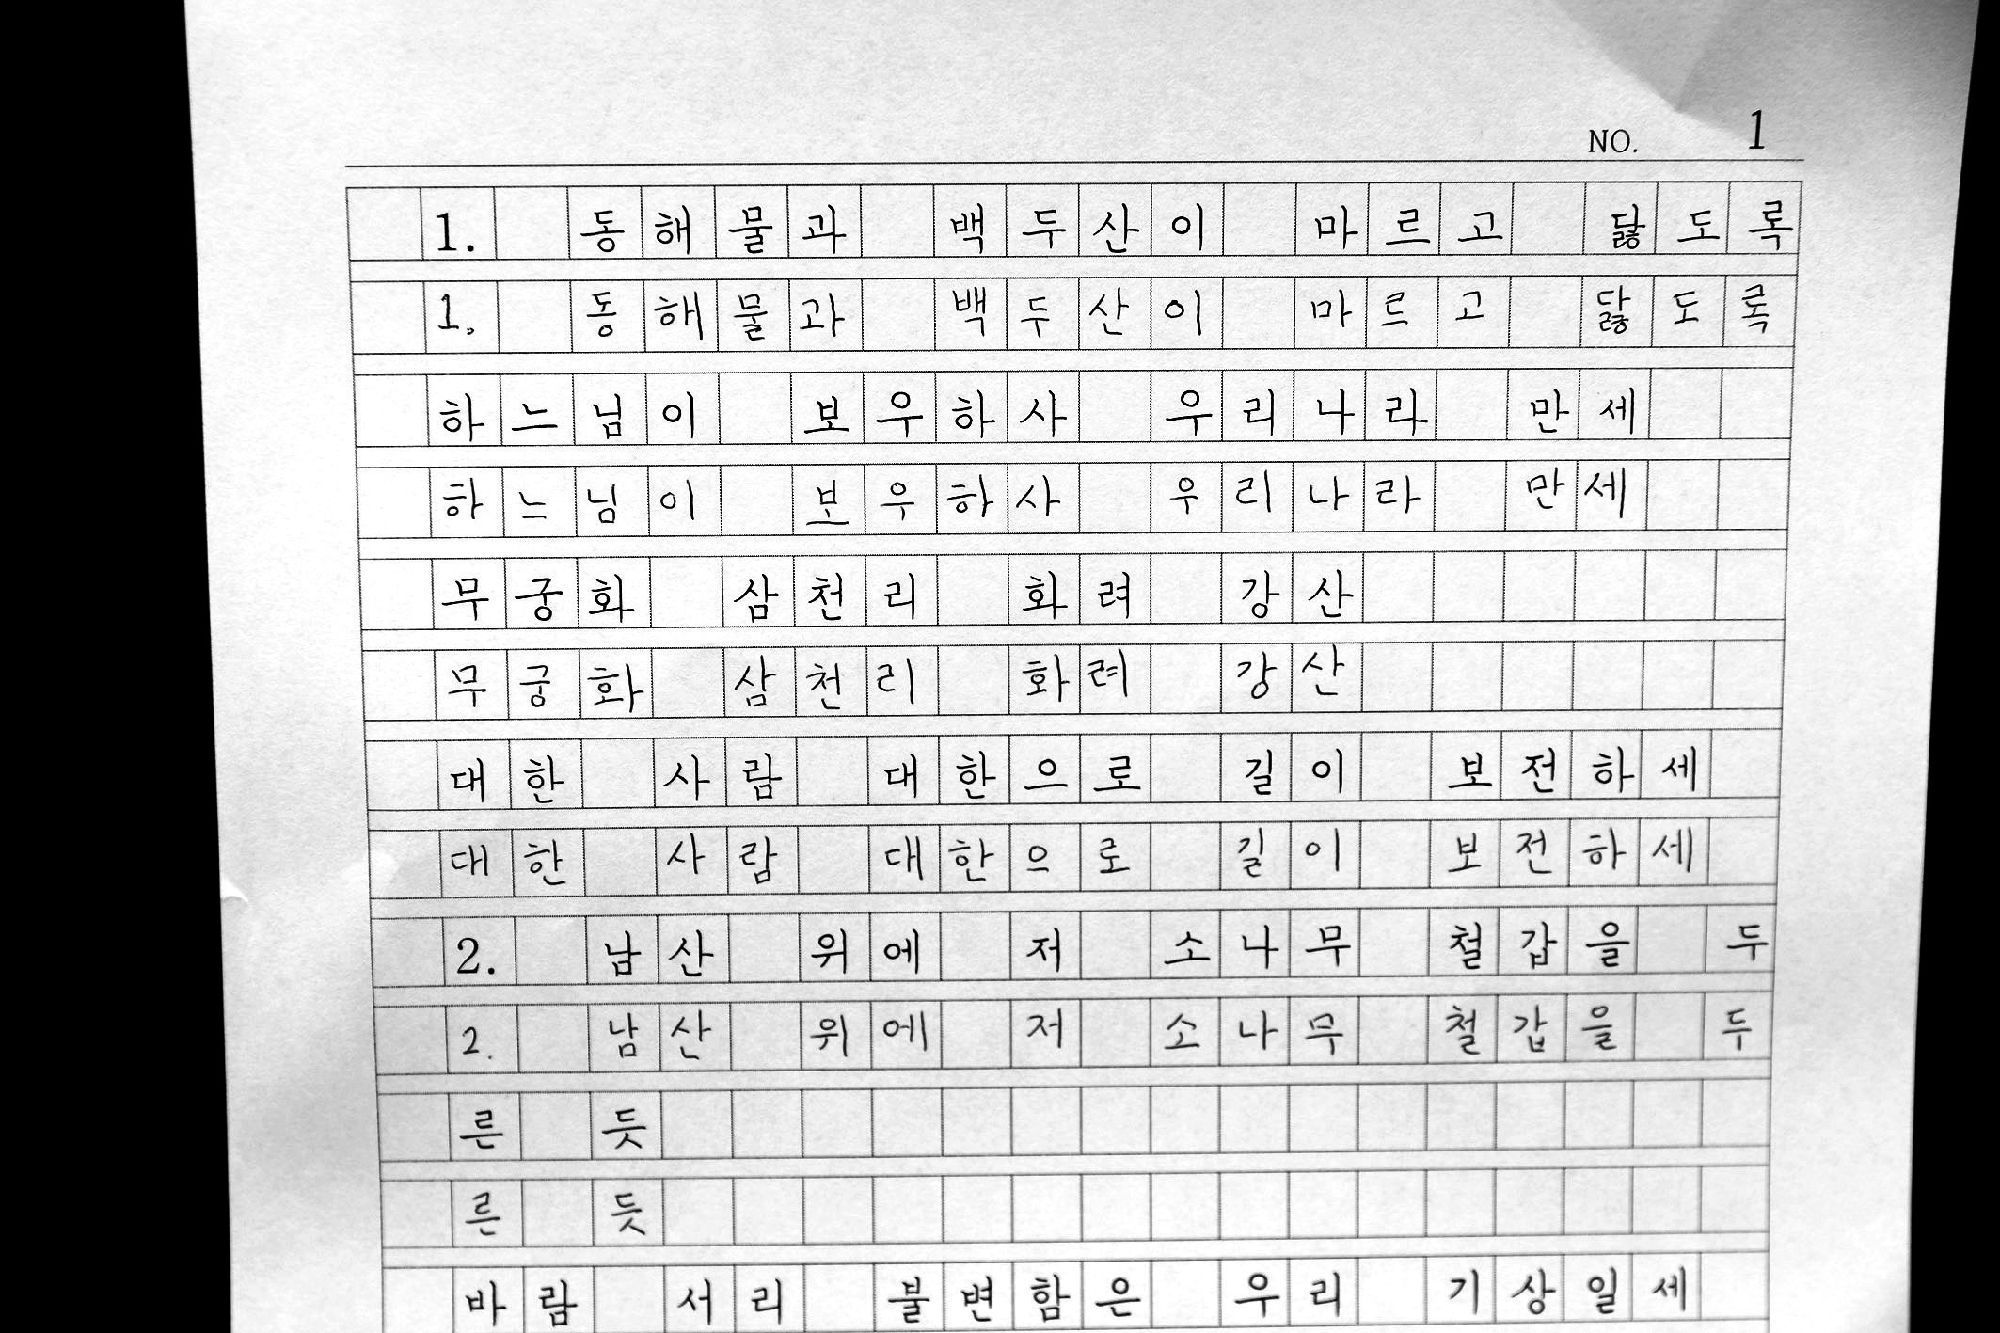 NO. 1
1. 동해물과 백두산이 마르고 닳도록
1. 동해물과 백두산이 마르고 닳도록
하느님이 보우하사 우리나라 만세
하느님이 보우하사 우리나라 만세
무궁화 삼천리 화려 강산
무궁화 삼천리 화려 강산
대한 사람 대한으로 길이 보전하세
대한 사람 대한으로 길이 보전하세
2. 남산 위에 저 소나무 철갑을 두
2. 남산 위에 저 소나무 철갑을 두
른 듯
른 듯
바람 서리 불변함은 우리 기상일세